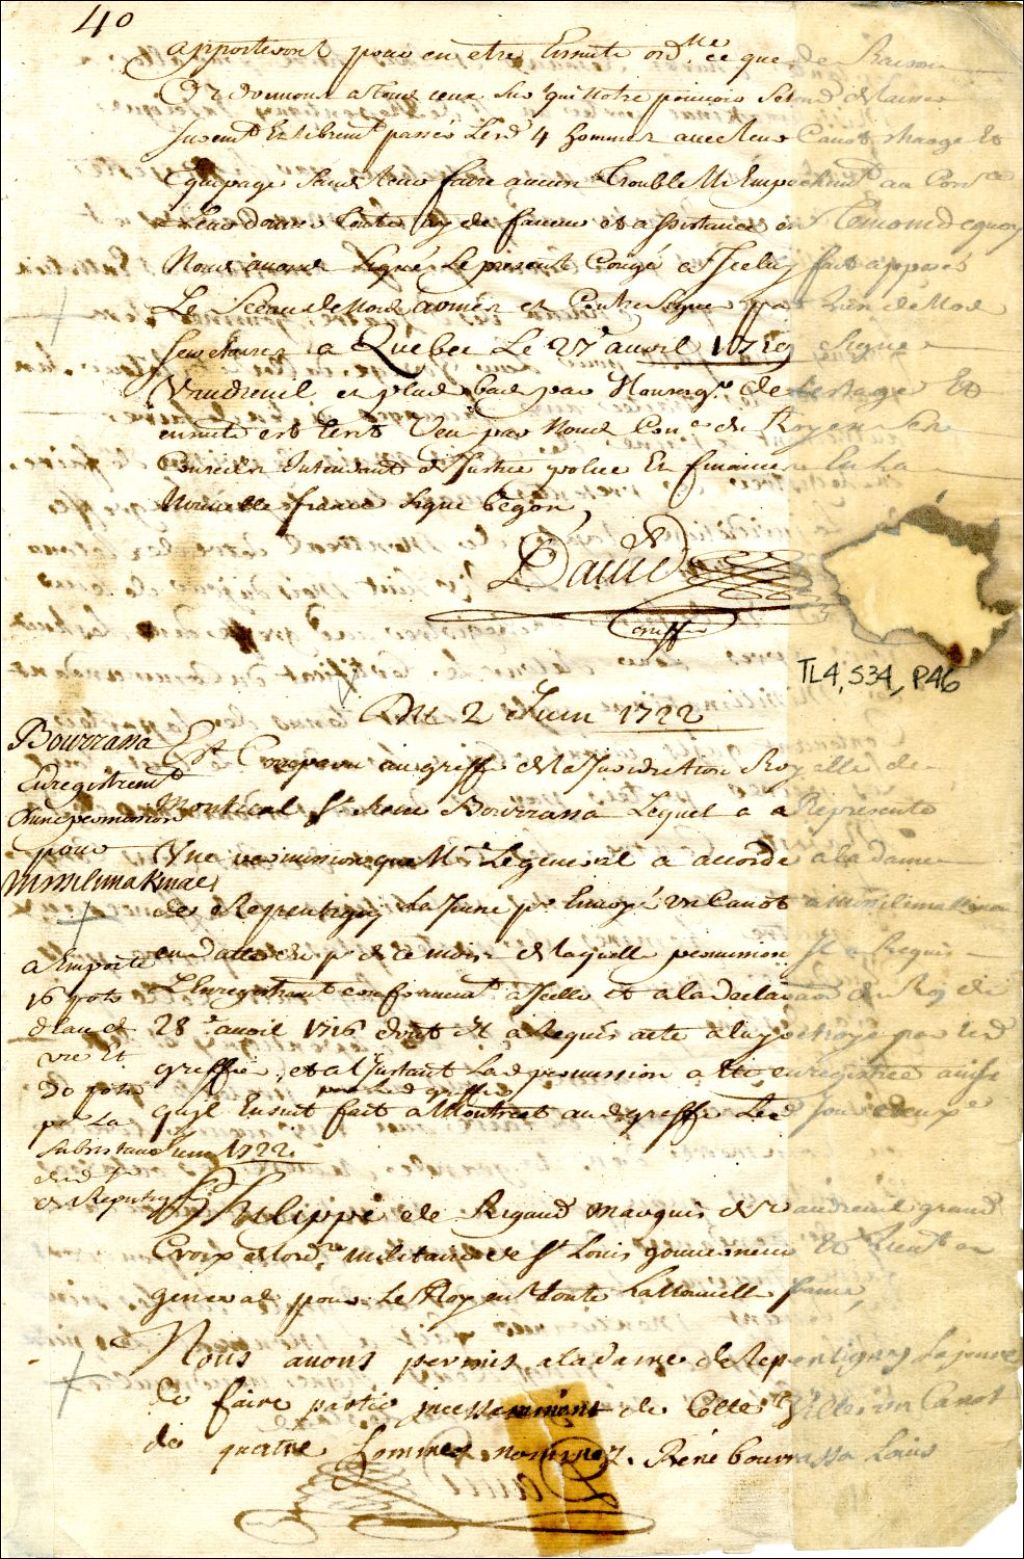 40
apporteront pour en etre Ensuite ord.né ce que de Raison
donnons a tous ceux sur qui notre pouvoir s'etend de laisser
seurem.t Et librem.t passer Lesd. 4 hommes avec leur Canot charge Et
Equipage sans leur faire aucun Trouble Ni Empechem.t au Con.re
Leur donner toute ayde faveur et assistance en Temoin dequoy
Nous avons Signé Le present Congé a Iceluy fait apposé
Le Sceau de Nos armes et Contresigné par L'un de Nos
Secretaires a Quebec Le 27.e avril 1719 Signé
Vaudreuil et plus bas par Monseig.r De Lestage Et
ensuite est Ecrit Veu par Nous Con.er du Roy en Ses
Conseils Intendant de Justice police Et finances En La
Nouvelle france Signé Begon,
David
Greffier
TL4, S34, P46
Du 2 Juin 1722
Bourrassa
Enregistrem.t
d'une permission
pour
Missilimakinac
Est Comparu au greffe de la Jurisdiction Royalle de
Montreal S.r Rene Bourrassa Lequel a a Representé
Une permission que M.r Le general a accordé a la dame
de Repentigny La Jeune p.r Envoyé un Canot a Missilimakinac
en datte du p.r de ce mois de laquelle permission Il a Requis
L'Enregistrem.t conformem.t a Icelle et a la Declaration du Roy du
28.e avril 1716 dont Il a Requis acte a luy octroyé par led.
greffier, et a l'Instant Lad. permission a eté enregistrée ainsy
par led. greffier
qu'il Ensuit fait a Montreal aud. greffe Led. Jour deux.e
Juin 1722.
a Emporté
16 pots
d'eau de
vie Et
30 pots
p.r La
subsistance
de Repentigny
Philippe de Rigaud Marquis de Vaudreuil grand
Croix de l'ord.re militaire de S.t Louis gouverneur Et Lieut.en
general pour Le Roy en toute La Nouvelle france,
Nous avons permis a la dame de Repentigny La jeune
de faire partir incessamment de Cette Ville un Canot
de quatre hommes nommez. René bourrassa Louis